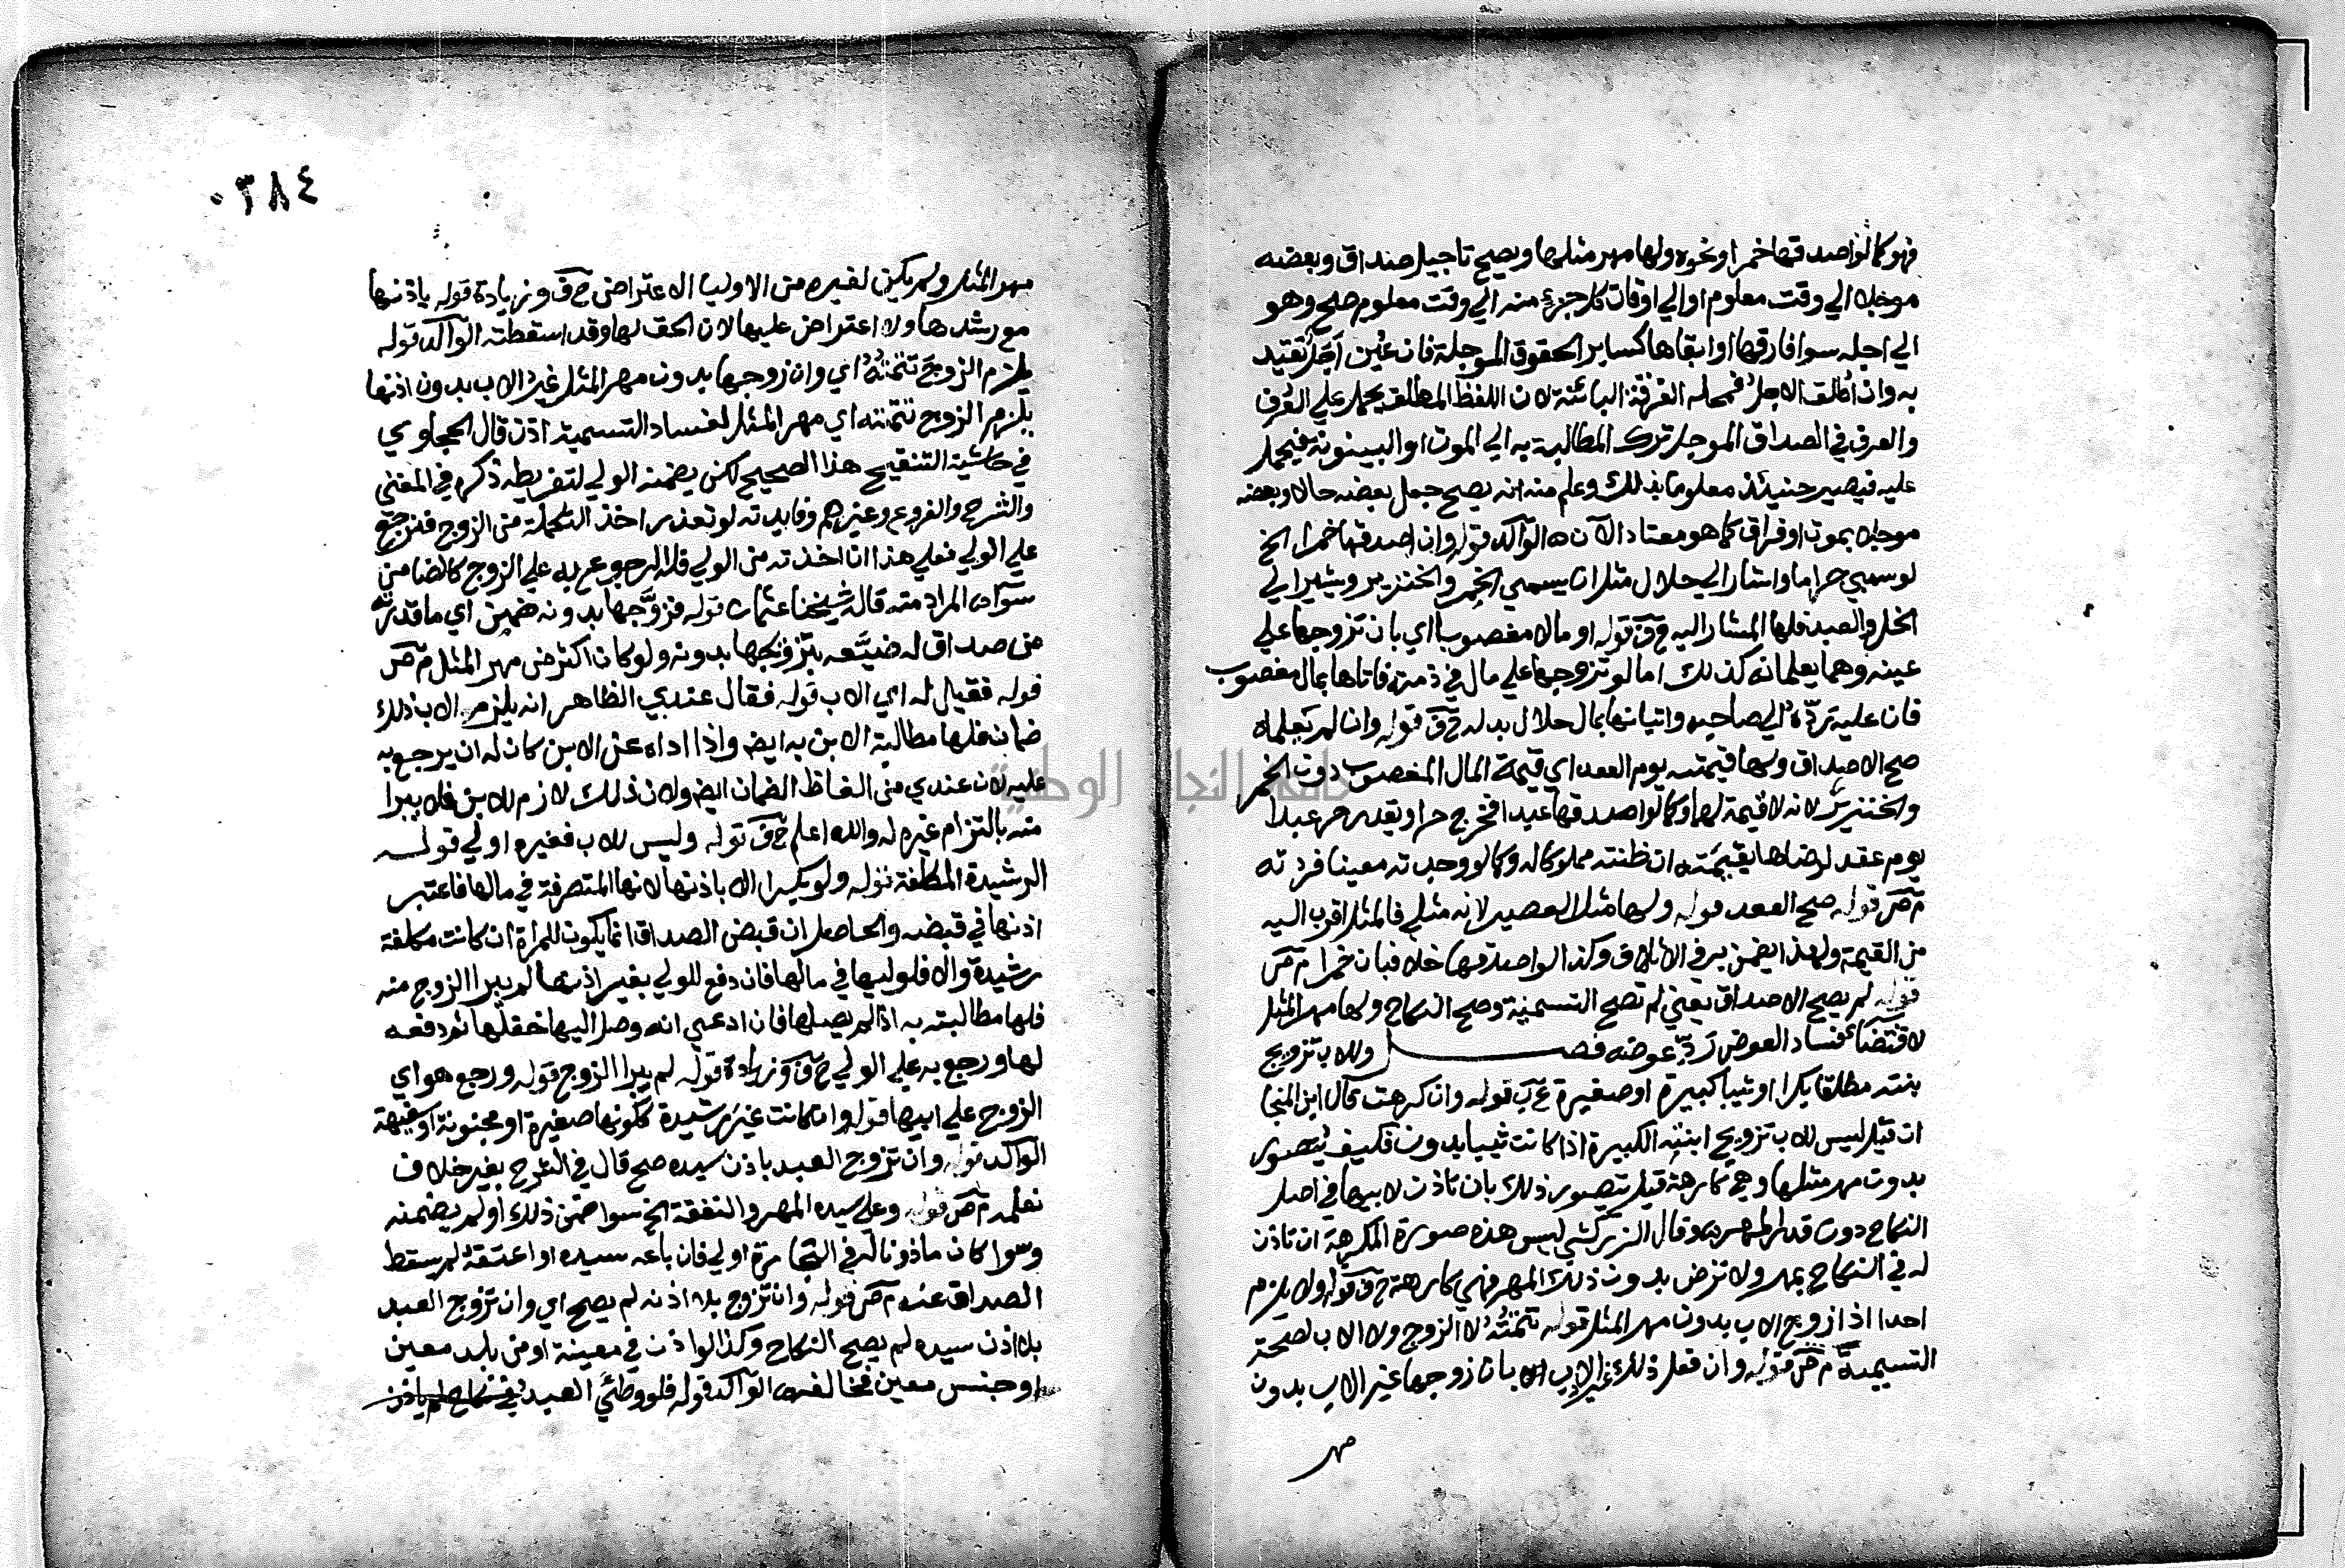 فهو كما لو اصدقها خمرا ونحوه ولها مهر مثلها ويصح تاجيل صداق وبعضه
موجلا الي وقت معلوم او الي اوقات كل جزء منه الي وقت معلوم صلح وهو
الي اجله سوا فارقها او ابقاها كساير الحقوق الموجلة فان عُين اجَل تقيد
به وان اُطلق الاجل فمحله الفرقة البائنة لان اللفظ المطلق يحمل علي العُرف
والعرف في الصداق الموجل ترك المطالبة به الي الموت او البينونة فيحمل
عليه فيصير حنيئذ معلوما بذلك وعلم منه انه يصح جعل بعضه حالا وبعضه
موجلا بموت او فراق كما هو معتاد الآن ه الوآلد قوله وان اصدقها خمرا الخ
لو سمي حراما واشار الي حلال مثل ان يسمي الخمر والخنزير ويشير الي
الخل والعبد فلها المشار اليه ح ق قوله او مالا مغصوبا اي بان تزوجها علي
عينه وهما يعلمانه كذلك اما لو تزوجها علي مال في ذمته فاتاها بمال مغصوب
فان عليه ردّه الي صاحبه واتيانها بمال حلال بدله ح ق قوله وان لم يعلماه
صح الاصداق ولها قيمته يوم العقد اي قيمة المال المغصوب دون الخمر
والخنزير لانه لا قيمة لهما وكما لو اصدقها عبدا فخرج حرا ويقدر حر عبدا
يوم عقد لرضاها بقيمته ان ظنته مملوكا له وكما لو وجدته معيبا فردته
م ص قوله صح العقد قوله ولها مثل العصير لانه مثلي فالمثل اقرب اليه
من القيمة ولهذا يضمن به في الاتلاف وكذا لو اصدقها خلا فبان خمرا م ص
قوله لم يصح الاصداق يعني لم تصح التسمية وصح النكاح ولها مهر المثل
لاقتضاء فساد العوض ردّ عوضه فصل وللاب تزويج
بنته مطلقا بكرا او ثيبا كبيرة او صغيرة ع ب قوله وان كرهت قال ابن المنجا
ان قيل ليس للاب تزويج ابنته الكبيرة اذا كانت ثيبا بدون فكيف يُتصور
بدون مهر مثلها وهي كارهة قيل يتصور ذلك بان تاذن لابيها في اصل
النكاح دون قدر المهر ه وقال الزركشي ليس هذه صورة المكرهة ان تاذن
له في النكاح بمهر ولا ترض بدون ذلك المهر فهي كارهة ح ق قوله ولا يلزم
احدا اذا زوج الاب بدون مهر المثل قوله تتمتُه لا الزوج ولا الاب لصحة
التسمية م ص قوله وان فعل ذلك غير الاب بان زوجها غير الاب بدون
مهر
٠٣٨٤
مهر المثل ولم يكن لغيره من الاوليا الاعتراض ح ق وزيادة قوله باذنها
مع رشدها ولا اعتراض عليها لان الحق لها وقد اسقطته الوآلد قوله
يلزم الزوج تتمتُهُ اي وان زوجها بدون مهر المثل غيرُ الاب بدون اذنها
يلزم الزوج تتمته اي مهر المثل لفساد التسمية اذن قال الحجاوي
في حاشية التنقيح هذا الصحيح لكن يضمنه الولي لتفريطه ذكره في المغني
والشرح والفروع وغيرهم وفايدته لو تعذر اخذ التكملة من الزوج فترجع
علي الولي فعلي هذا ان اخذته من الولي فله الرجوع به علي الزوج كالضامن
سوآء المراد منه قاله شيخنا عثمان قوله فزوَّجها بدونه ضمن اي ما قدرته
من صداق له ضيَّعه بتزويجها بدونه ولو كان اكثر من مهر المثل م ص
قوله فقيل له اي الاب قوله فقال عندي الظاهر انه يلزم الاب ذلك
ضمانا فلها مطالبة الابن به ايض واذا اداه عن الابن كان له ان يرجع به
عليه لان عندي من الفاظ الضمان ايض ولان ذلك لازم للابن فلا يبرا
منه بالتزام غيره له والله اعلم ح ق قوله وليس للاب فغيره اولي قوله
الرشيدة المكلفة قوله ولو بكرا الا باذنها لانها المتصرفة في مالها فاعتبر
اذنها في قبضه والحاصل ان قبض الصداق انما يكون للمراة ان كانت مكلفة
رشيدة والا فلوليها في مالها فان دفع للولي بغير اذنها لم يبرا الزوج منه
فلها مطالبته به اذا لم يصلها فان ادعي انه وصل اليها دفعه
لها ورجع به علي الولي ح ق وزيادة قوله لم يبرا الزوج قوله ورجع هو اي
الزوج علي ابيها قوله وان كانت غيرَ رشيدة لكونها صغيرة او مجنونة او سفيهة
الوآلد قوله وان تزوج العبد باذن سيده صح قال في الشرح بغير خلاف
نعلمه م ص قوله وعلي سيده المهر والنفقة الخ سوا ضمن ذلك او لم يضمنه
وسوا كان ماذونا له في التجارة او لي فان باعه سيده او اعتقهُ لم يسقط
الصداق عنه م ص قوله وان تزوج بلا اذنه لم يصح اي وان تزوج العبد
بلا اذن سيده لم يصح النكاح وكذا لو اذن في معينة او من بلد معين
او جنس معين فخالفه الوآلد قوله فلو وطئي العبد في نكاح لم ياذن